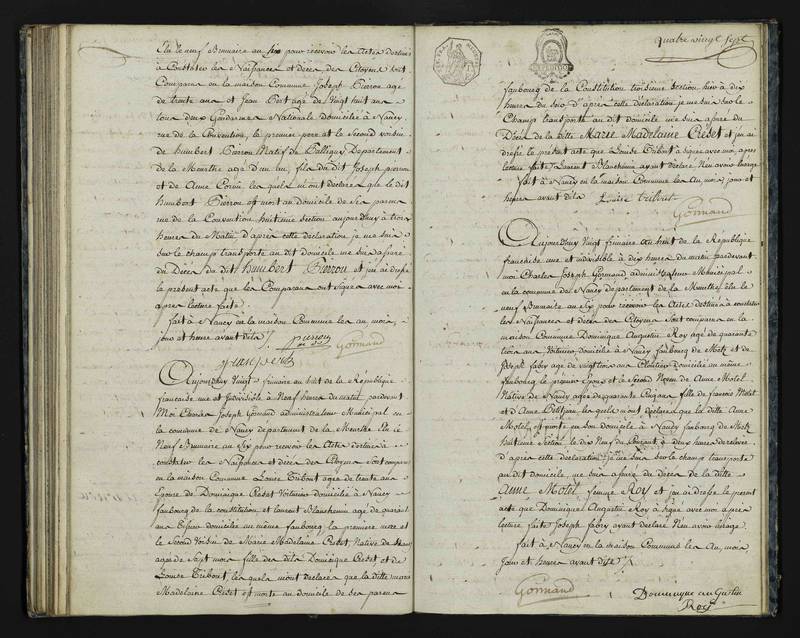 Elu le neuf Brumaire an six pour recevoir les Actes destinés
à Constater les Naissances et décès des Citoyens sont
Comparus en la maison Commune Joseph Pierron agé
de trente ans et Jean Bert agé de Vingt huit ans
tous deux Gardes Nationale domiciliés à Nancy
rue de la Convention, le premier pere et le Second voisin
de humbert Pierron Natif de Département
de la Meurthe agé d'un an, fils du dit Joseph pierron
et de Anne lesquels m'ont déclarés que le dit
humbert Pierron est mort au domicile de ses parens
rue de la Convention huitieme Section aujourd'huy à trois
heures du Matin d'après cette déclaration je me suis
sur le champ transporté au dit domicile me suis assuré
du Décès du dit humbert Pierron et j'ai dressé
le présent acte que les Comparans ont signés avec moi
après lecture faite
fait à Nancy en la maison Commune les an mois,
jour et heure avant dits
pierron Gormand
jean bert
Aujourdhuy Vingt frimaire an huit de la République
française une et Indivisible à Neuf heures du matin pardevant
Moi Charles Joseph Gormand administrateur Municipal en
la commune de Nancy département de la Meurthe Elu le
Neuf Brumaire an Six pour recevoir les Actes destinés à
constater les Naissances et décès des Citoyens Sont comparus
en la maison Commune Louise Tribout agée de trente ans
Epouse de Dominique Cridet Voiturier domicilié à Nancy
faubourg de la constitution et Laurent Blaucheuin agé de quarante
ans domicilié au même faubourg la premiere mere et
le Second Voisin de Marie Madelaine Cridet Native de Nancy
agée de Sept mois fille des dits Dominique Cridet, et de
Louise Tribout, lesquels m'ont déclarés que la ditte marie
Madelaine Cridet est morte au domicile de ses parens
quatre vingt sept
faubourg de la Constitution troisieme section hier à dix
heures du soir, d'après cette déclaration je me suis sur le
Champ transporté au dit domicile me suis assuré du
Décès de la ditte Marie Madelaine Cridet et j'ai
dressé le présent acte que Louise Tribout à signée avec moi après
lecture faite, Laurent Blaucheuin ayant déclaré N'en avoir l'usage
fait à Nancy en la maison Commune les An, mois, jour et
heure avant dits Louise tribout
Gormand
Aujourdhuy Vingt frimaire An huit de la République
française une et indivisible à dix heures du matin pardevant
moi Charles Joseph Gormand administrateur Municipal
en la commune de Nancy département de la Meurthe, élu le
neuf Brumaire an Six pour recevoir les Actes destinés à constater
les Naissances et décès des Citoyens sont comparus en la
maison Commune Dominique Augustin Roy agé de quarante
trois ans Voiturier domicilié à Nancy faubourg de Metz et
Joseph fabry agé de vingt trois ans Cloutier Domicilié au même
faubourg le premier Epoux et le Second Neveu de Anne Motel
Native de Nancy agée de quarante Cinq ans fille de francois Motel
et d'Anne Petitjean lesquels m'ont déclarés que la ditte Anne
Motel est morte en son domicile à Nancy faubourg de Metz
huitieme Section le dix Neuf du Courant à deux heures de relevée
d'après cette déclaration, je me suis sur le champ transporté
au dit domicile, me suis assuré du Décès de la ditte
Anne Motel femme Roy et j'ai dressé le présent
acte que Dominique Augustin Roy à Signé avec moi après
lecture faite, Joseph fabry ayant déclaré N'en avoir l'usage.
fait à Nancy en la maison Commune les An, mois
Jour et heures avant dits
Gormand Dominique augustin
Roy